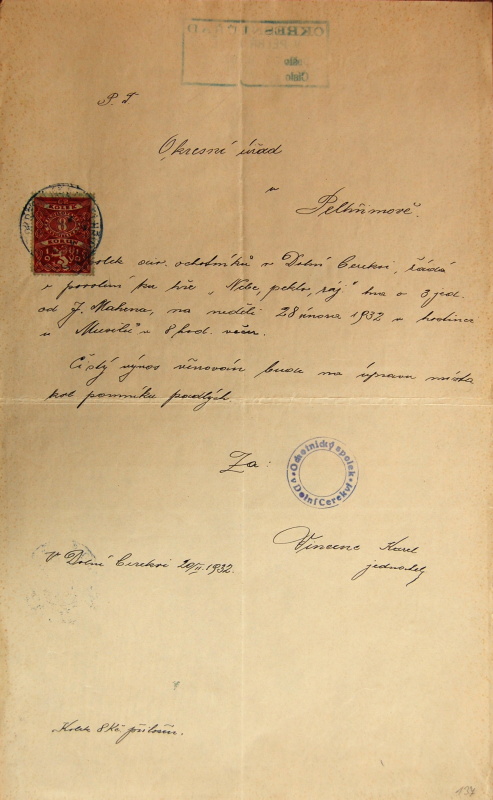 OKRESNÍ ÚŘAD
Číslo
P. T.
Okresní úřad
v
Pelhřimově.
div. ochotníků v Dolní Cerekvi, žádá
o povolení ku hře „Nebe, peklo, ráj" hra o 3 jed.
od J. Mahena, na neděli 28 února 1932 v hostinci
u v 8 hod. večer.
Čistý výnos věnován bude na úpravu místa
kol pomníku padlých.
Za:
Ochotnický spolek
v Dolní Cerekvi
Vincenc Karel
jednatel
V Dolní Cerekvi 20/II. 1932.
Kolek 8 Kč přiložen.
137